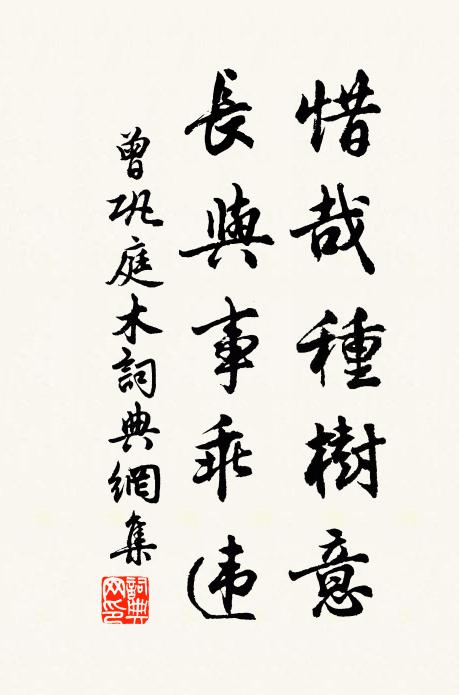 惜哉種樹意
長與事乖违
曾巩庭木詞典網集
詞典网印